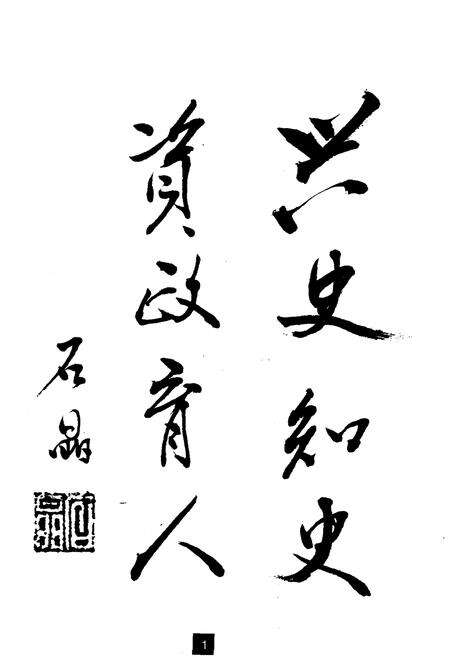 兴史知史
資政育人
石晶
1